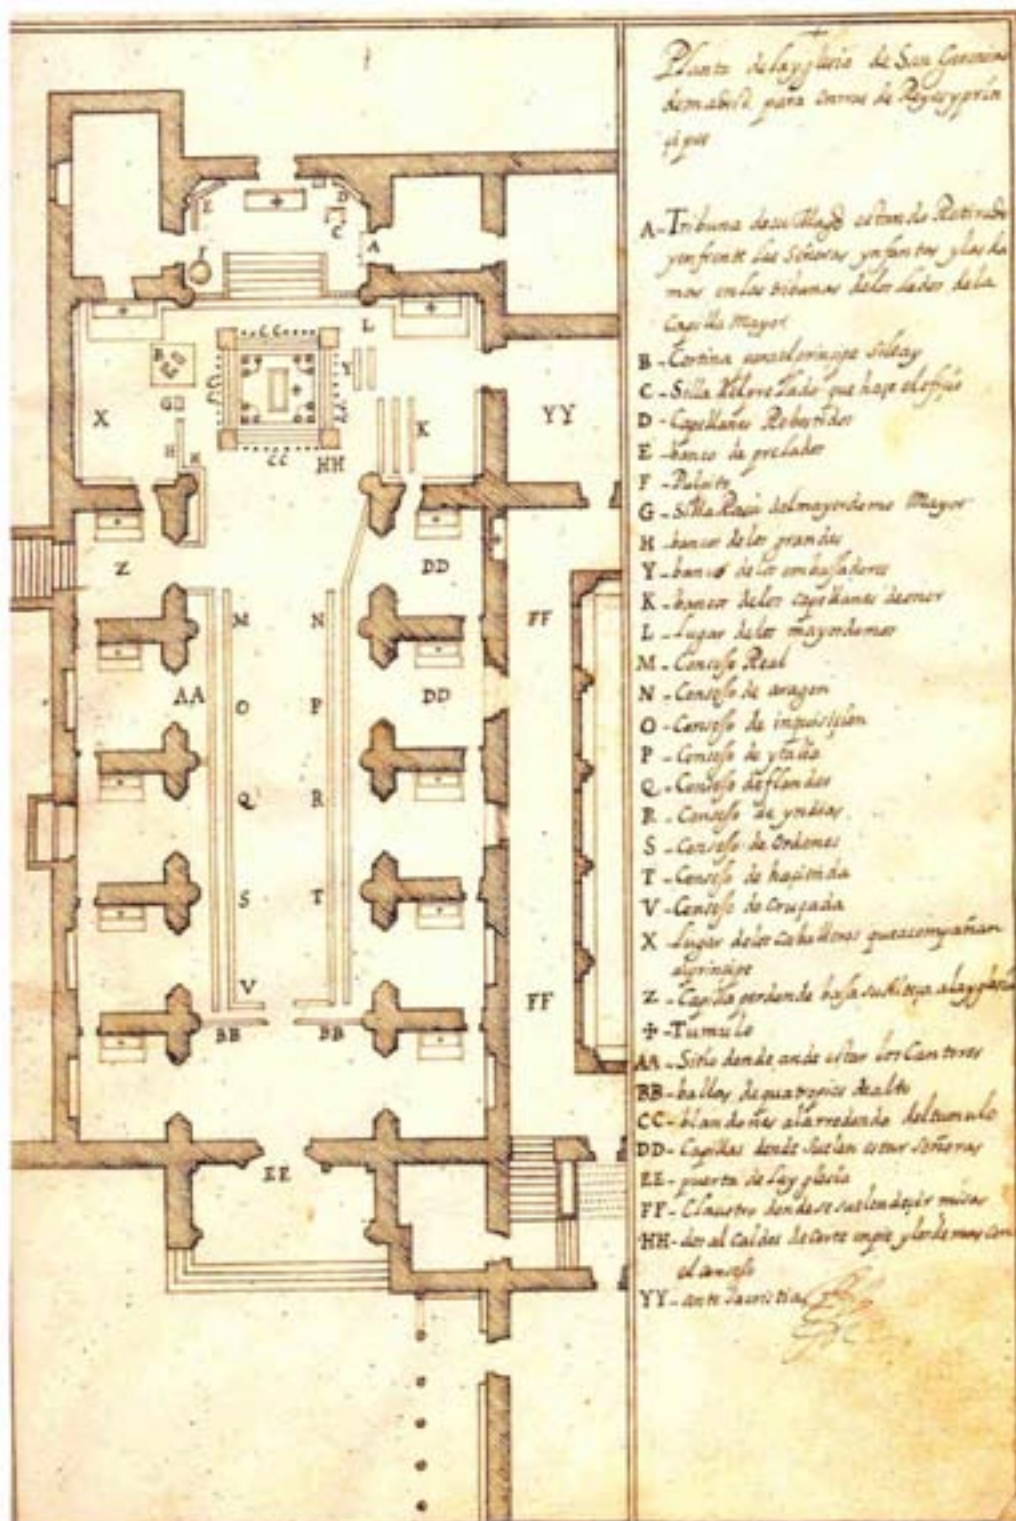 Planta de la yglesia de San Geronimo
de madrid para onrras de Reyes y prin
çipes
A - Tribuna de su Magd estando Retirado
y enfrente las Señoras ynfantas y las da
mas en las tribunas de los lados de la
Capilla Mayor
B - Cortina con el principe
C - Silla del prelado que haçe el ofiçio
D - Capellanes Rebestidos
E - banco de prelados
F - Pulpito
G - Silla Rasa del mayordomo Mayor
H - banco de los grandes
Y - banco de los embaxadores
K - bancos de los capellanes
L - Lugar de los mayordomos
M - Consejo Real
N - Consejo de aragon
O - Consejo de inquisiçion
P - Consejo de ytalia
Q - Consejo de flandes
R - Consejo de yndias
S - Consejo de Ordenes
T - Consejo de haçienda
V - Consejo de Cruçada
X - Lugar de los Caballeros que acompañan
al principe
Z - Capilla por donde baja a la yglesia
✠ - Tumulo
AA - Sitio donde ande estar los Cantores
BB - ballas de quatro pies de alto
CC - blandones al arrededor del tumulo
DD - Capillas donde suelen estar señoras
EE - puerta de la yglesia
FF - Claustro donde se suelen deçir misas
HH - dos alcaldes de corte en pie y los demas con
el consejo
YY - ante sacristia
E
D
C
A
F
CC
L
B
Y
G
X
K
YY
H
H
CC
HH
Z
DD
FF
M
N
AA
O
P
DD
Q
R
S
T
V
FF
BB
BB
EE